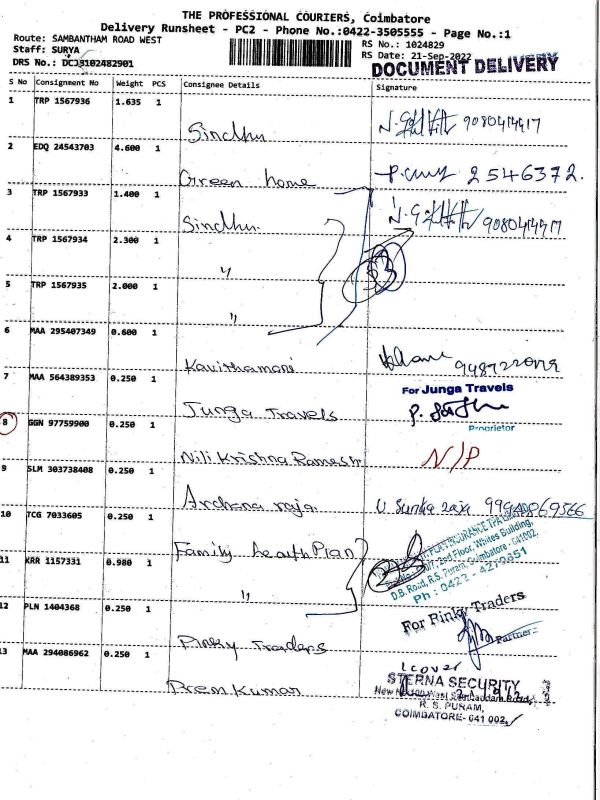 THE PROFESSIONAL COURIERS, Coimbatore
Delivery Runsheet - PC2 - Phone No.:0422-3505555 - Page No.:1
Route: SAMBANTHAM ROAD WEST
RS No.: 1024829
Staff: SURYA
RS Date: 21-Sep-2022
DRS No.: DCJ8102482901
DOCUMENT DELIVERY
S No Consignment No Weight PCS Consignee Details Signature
1 TRP 1567936 1.635 1
Sindhu 9080414917
2 EDQ 24543703 4.600 1
Green home 2546372.
3 TRP 1567933 1.400 1
Sindhu. 9080414917
4 TRP 1567934 2.300 1
"
5 TRP 1567935 2.000 1
"
6 MAA 295407349 0.600 1
Kavithamani
7 MAA 564389353 0.250 1
For Junga Travels
Junga Travels
Proprietor
8 GGN 97759900 0.250 1
Nili Krishna Ramesh N/P
9 SLM 303738408 0.250 1
Archana raja
10 TCG 7033605 0.250 1
Family health Plan
2nd Floor, Whites Building,
D.B. Road, R.S. Puram, Coimbatore - 641002,
Ph : 0422 -
11 KRR 1157331 0.980 1
"
12 PLN 1404368 0.250 1
For Pinky Traders
Pinky Traders
Partner
13 MAA 294086962 0.250 1
1 cover
Prem Kumar
STERNA SECURITY
R. S. PURAM,
COIMBATORE- 641 002,